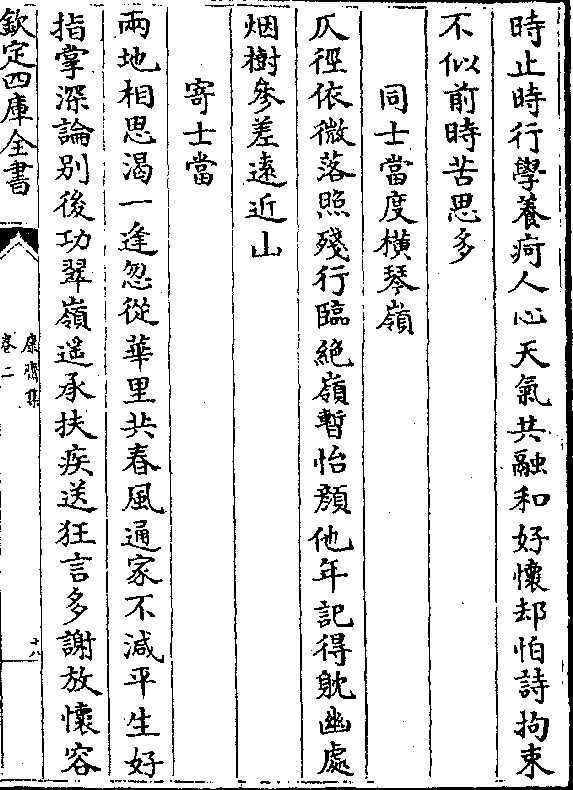 時止時行學養疴人心天氣共融和好懷却怕詩拘束
不似前時苦思多
同士當度橫琴嶺
仄徑依微落照殘行臨絶嶺暫怡顔他年記得躭幽處
烟樹參差遠近山
寄士當
兩地相思渴一逢忽從華里共春風通家不减平生好
指掌深論別後功翠嶺遥承扶疾送狂言多謝放懷容
欽定四庫全書
康齋集
卷二
十八